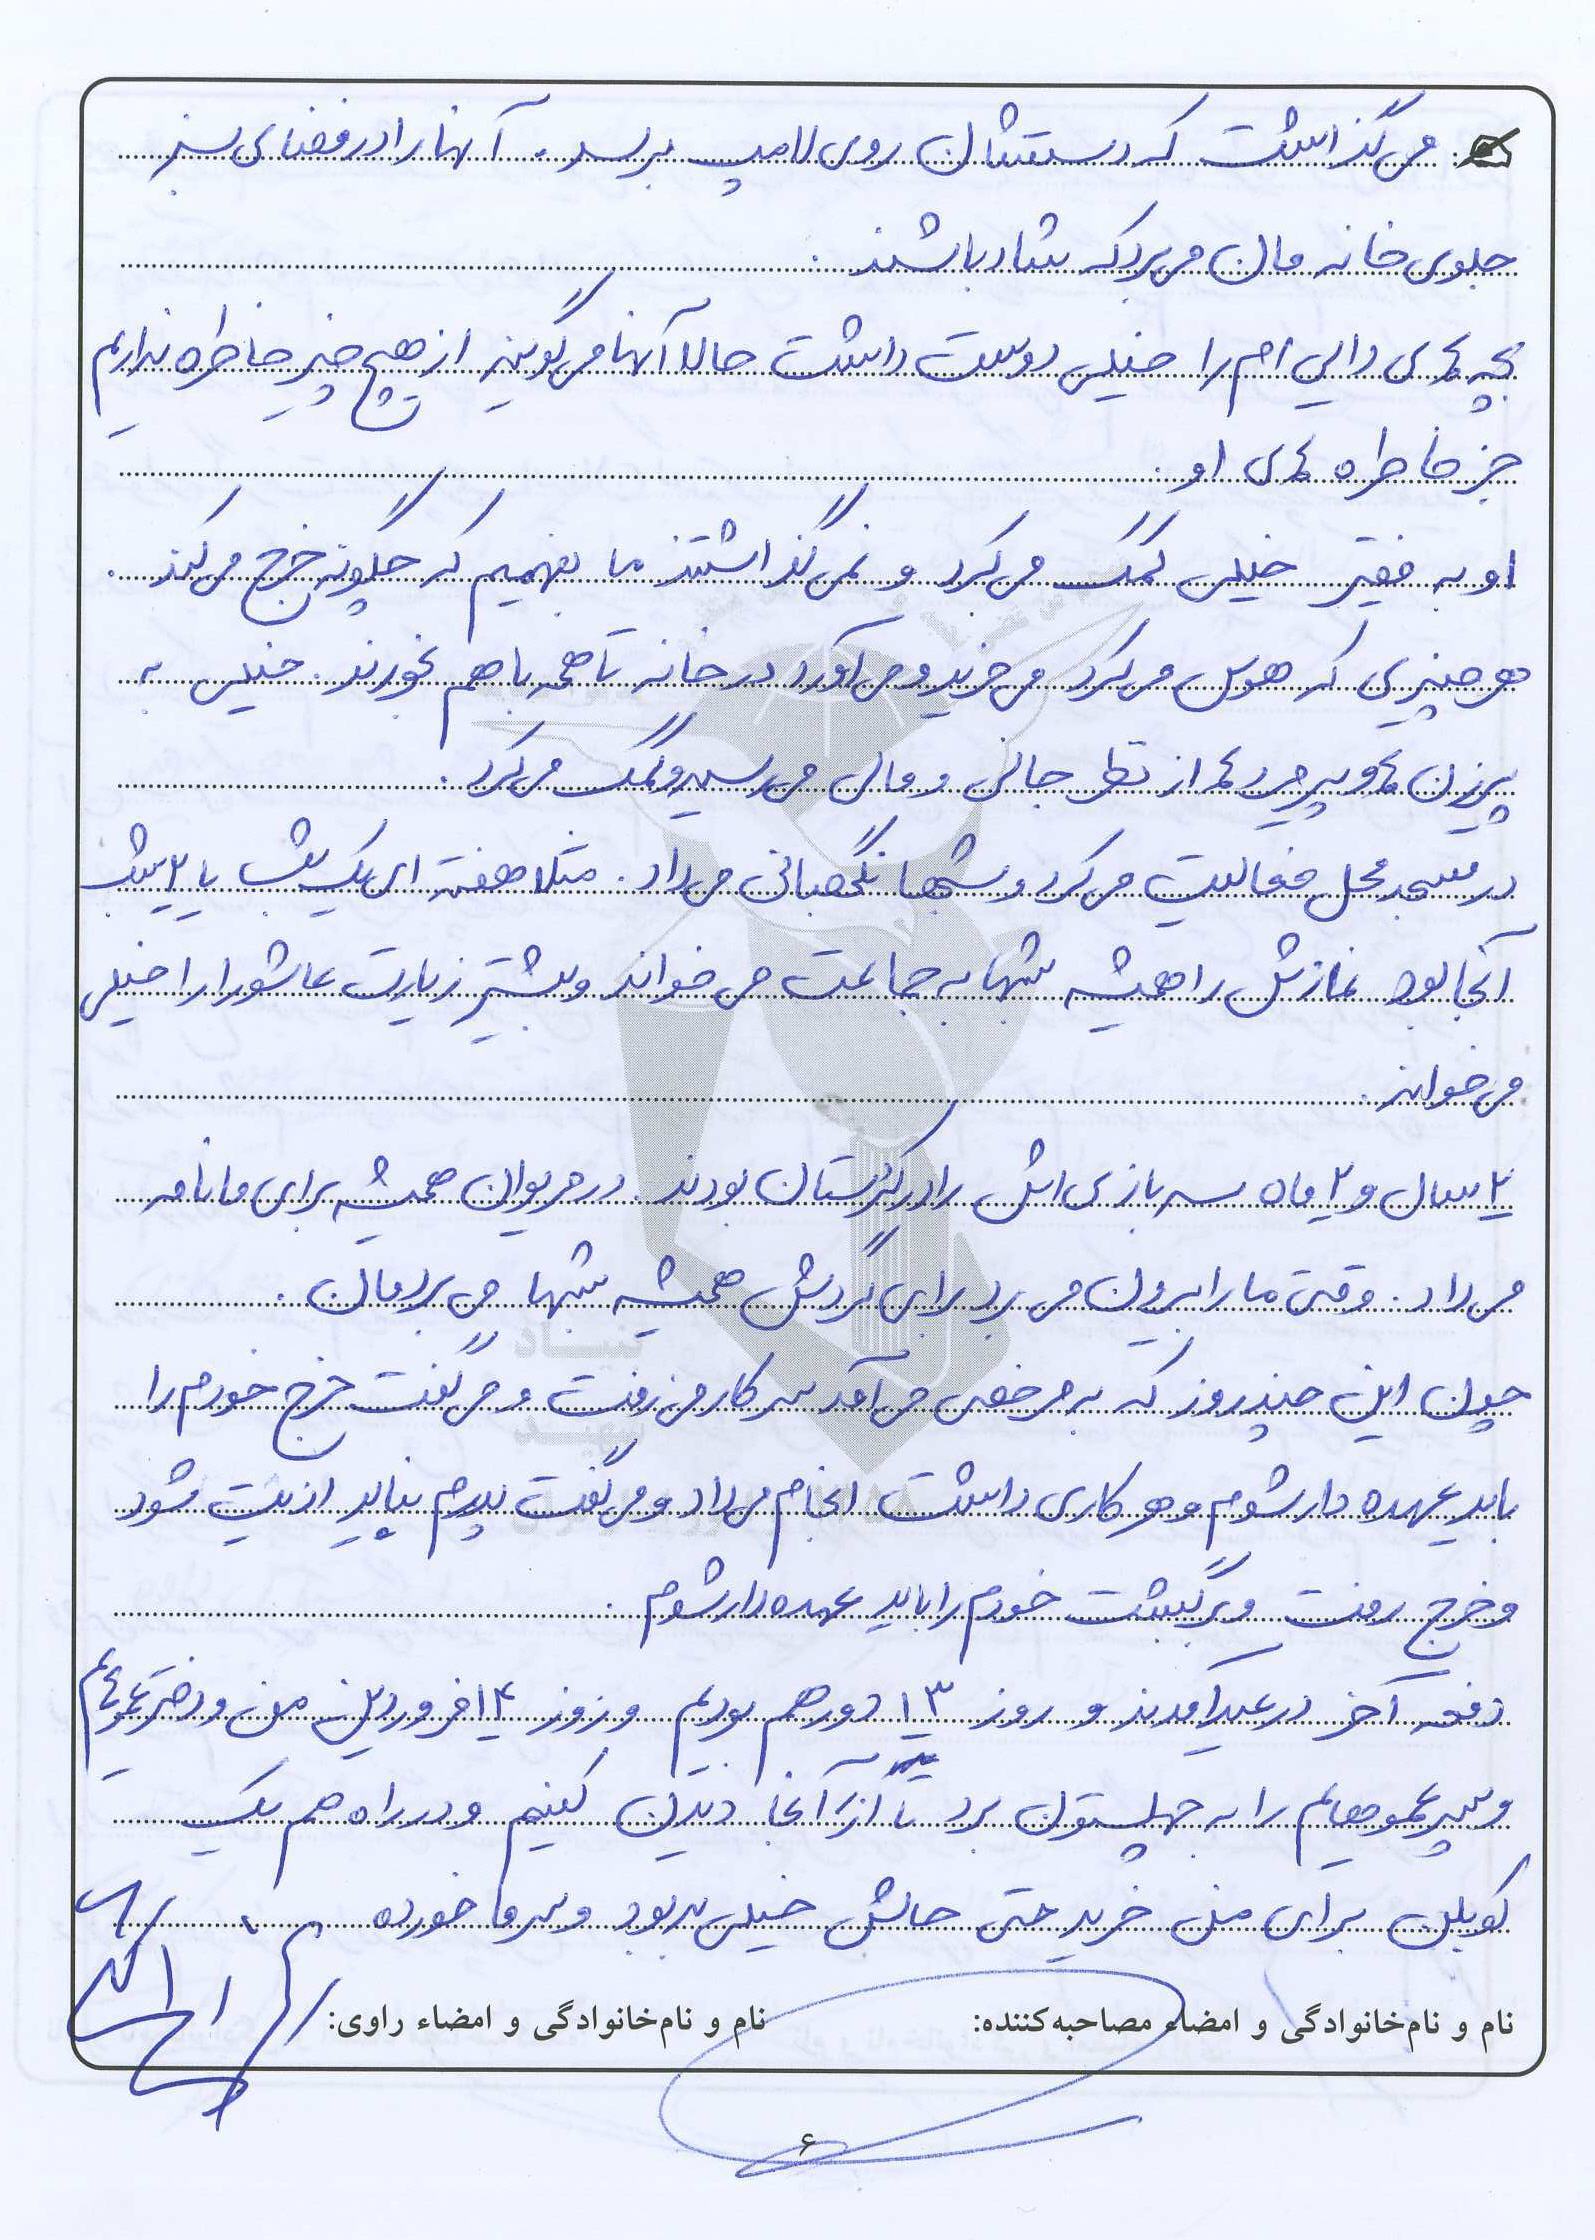 می گذاشت که دستشان روی لامپ برسد. آنها را در فضای سبز
جلوی خانه مان می برد که شاد باشند.
بچه های دایی ام را خیلی دوست داشت حالا آنها می گویند از هیچ چیز خاطره نداریم
جز خاطره های او.
او به فقیر خیلی کمک می کرد و نمی گذاشتند ما بفهمیم که چگونه خرج می کند.
هر چیزی که هوس می کرد می خرید و می آورد در خانه تا همه با هم بخورند. خیلی به
پیرزن ها و پیرمردها از نظر جانی و مالی می رسید و کمک می کرد.
در مسجد محل فعالیت می کرد و شبها نگهبانی می داد. مثلا هفته ای یک شب یا ۲ شب
آنجا بود نمازش را همیشه شبها به جماعت می خواند و بیشتر زیارت عاشورا را خیلی
می خواند.
۲ سال و ۲ ماه سربازی اش را در کردستان بودند. در مریوان همیشه برای ما نامه
می داد. وقتی ما را بیرون می برد برای گردش همیشه شبها می بردمان.
چون این چند روز که به مرخصی می آمد سر کار می رفت و می گفت خرج خودم را
باید عهده دار شوم و هر کاری داشت انجام می داد و می گفت پدرم نباید اذیت شود
و خرج رفت و برگشت خودم را باید عهده دار شوم.
دفعه آخر در عید آمدند و روز ۱۳ دور هم بودیم و روز ۱۴ فروردین من و دختر عموهایم
و پسر عموهایم را به چهلستون برد تا از آنجا دیدن کنیم و در راه هم یک
کوبلن برای من خرید حتی حالش خیلی بد بود و سرما خورده
نام و نام‌خانوادگی و امضاء مصاحبه‌کننده: نام و نام‌خانوادگی و امضاء راوی:
۶